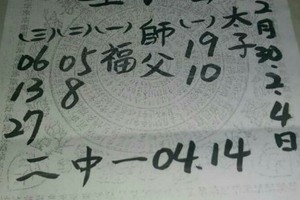 太子
2月30.2.4日
(一)
19
10
師父
(一)
福
(二)
05
8
(三)
06
13
27
二中一04.14